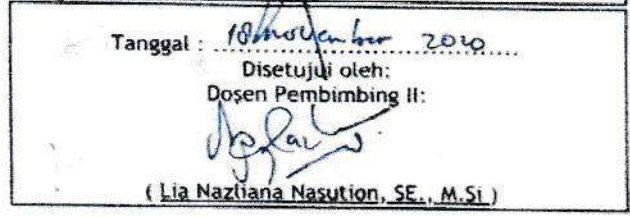 Tanggal : 18 November 2020
Disetujui oleh:
Dosen Pembimbing II:
( Lia Nazliana Nasution, SE., M.Si )